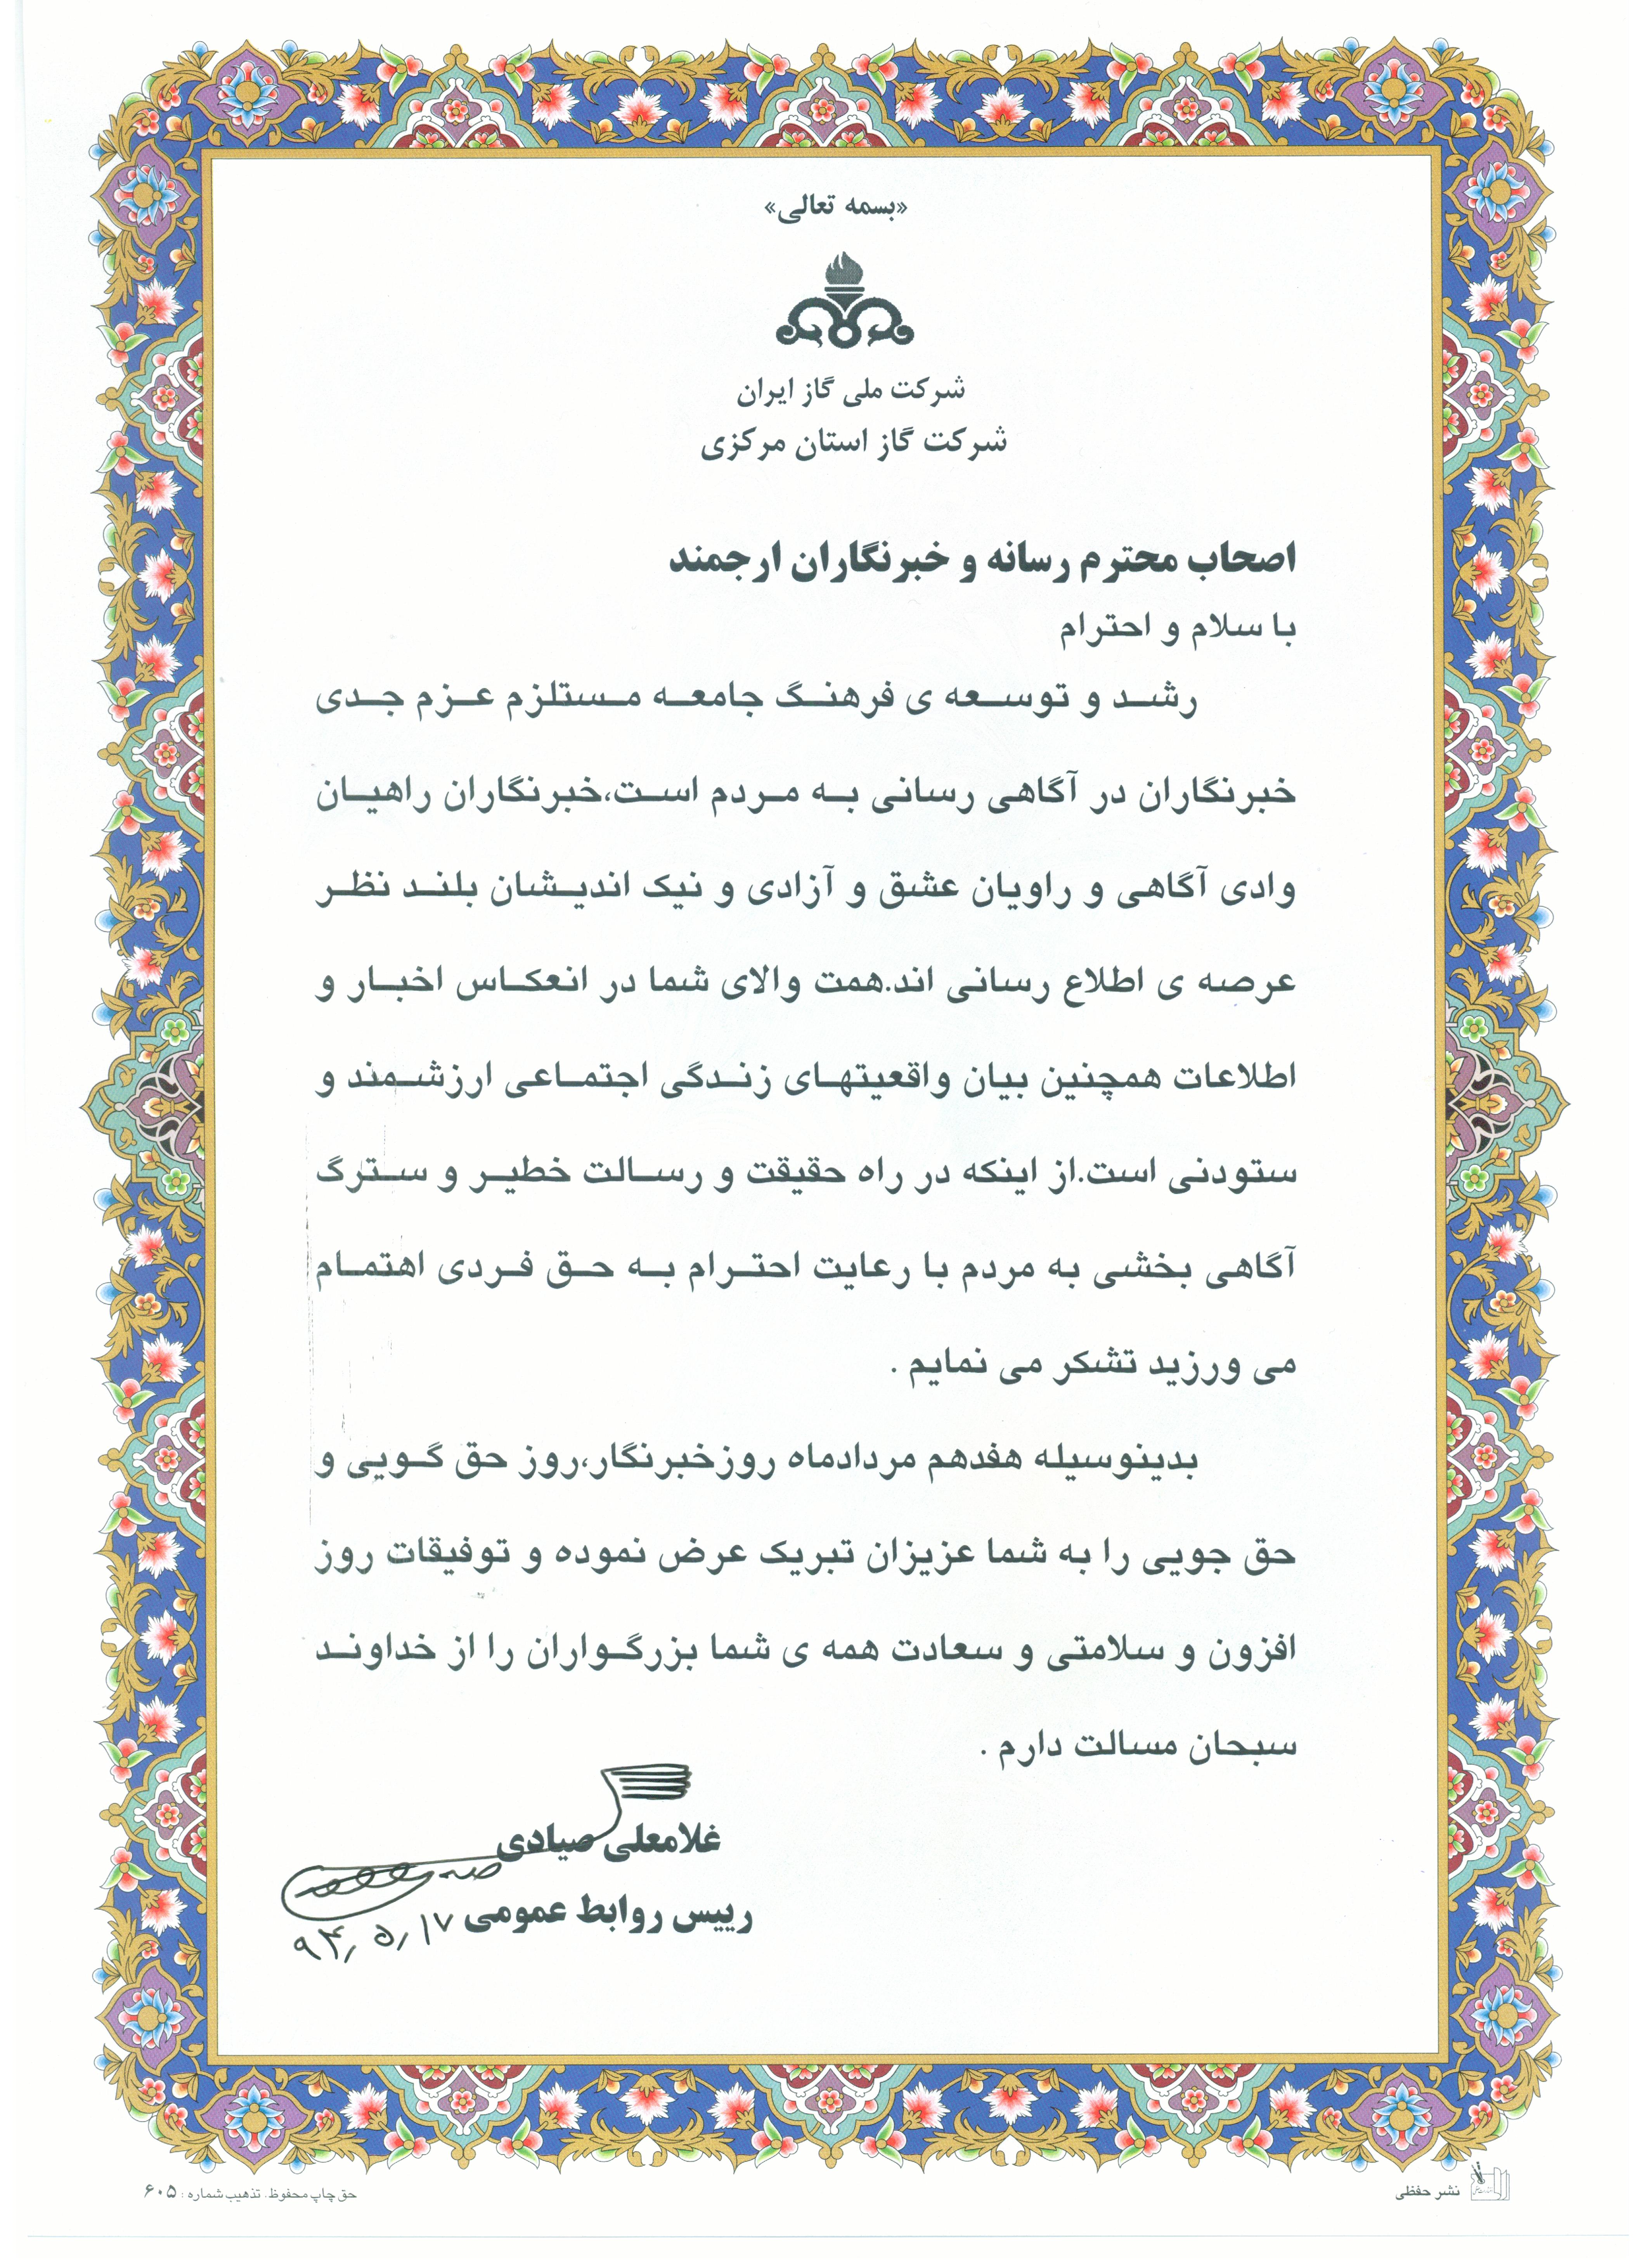 «بسمه تعالی»
شرکت ملی گاز ایران
شرکت گاز استان مرکزی
اصحاب محترم رسانه و خبرنگاران ارجمند
با سلام و احترام
رشد و توسعه ی فرهنگ جامعه مستلزم عزم جدی
خبرنگاران در آگاهی رسانی به مردم است،خبرنگاران راهیان
وادی آگاهی و راویان عشق و آزادی و نیک اندیشان بلند نظر
عرصه ی اطلاع رسانی اند.همت والای شما در انعکاس اخبار و
اطلاعات همچنین بیان واقعیتهای زندگی اجتماعی ارزشمند و
ستودنی است.از اینکه در راه حقیقت و رسالت خطیر و سترگ
آگاهی بخشی به مردم با رعایت احترام به حق فردی اهتمام
می ورزید تشکر می نمایم .
بدینوسیله هفدهم مردادماه روزخبرنگار،روز حق گویی و
حق جویی را به شما عزیزان تبریک عرض نموده و توفیقات روز
افزون و سلامتی و سعادت همه ی شما بزرگواران را از خداوند
سبحان مسالت دارم .
غلامعلی صیادی
رییس روابط عمومی
۹۴٫۵٫۱۷
نشر حفظی
حق چاپ محفوظ. تذهیب شماره : ۶۰۵